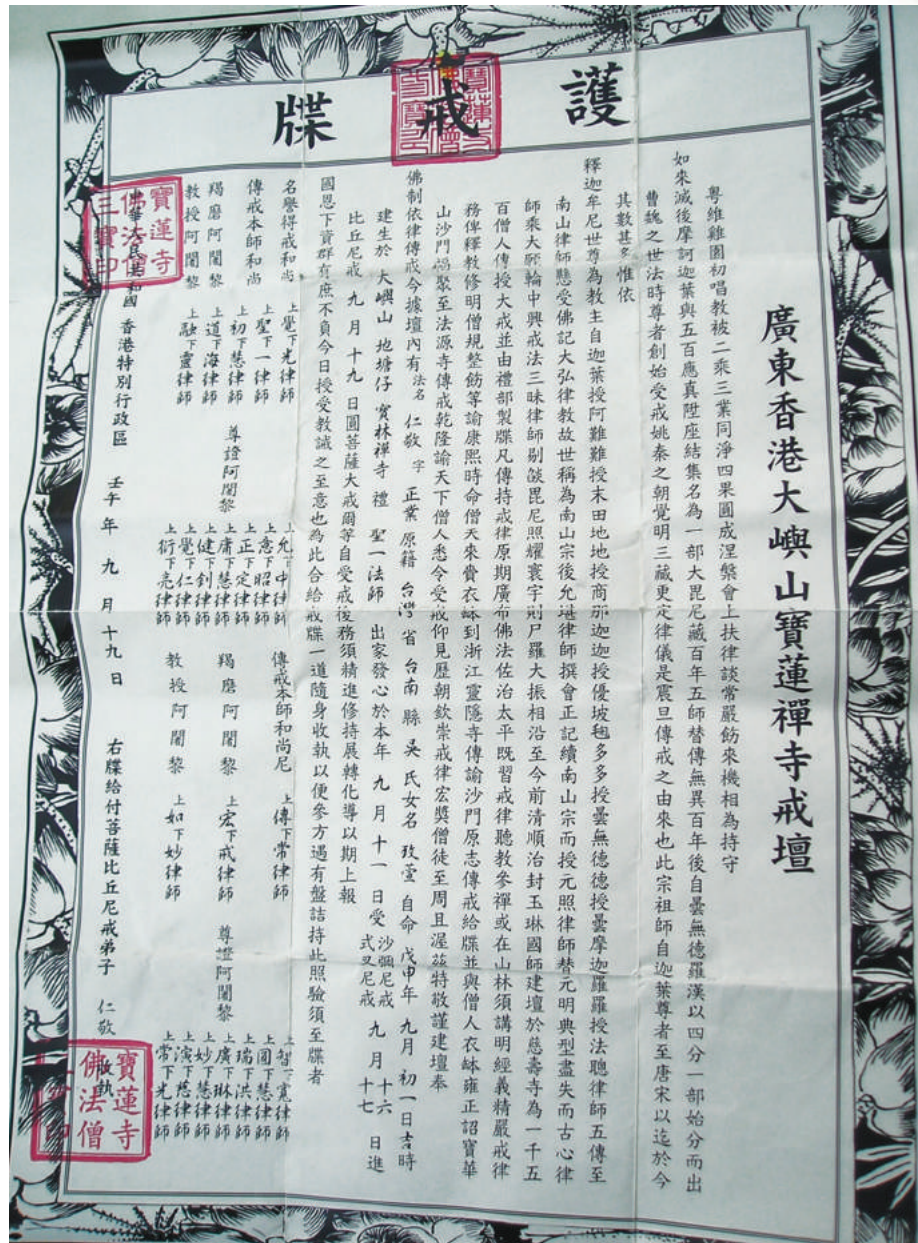 護戒牒
廣東香港大嶼山寶蓮禪寺戒壇
粵維雞園初唱教被二乘三業同淨四果圓成涅槃會上扶律談常嚴飭來機相為持守
如來滅後摩訶迦葉與五百應真陞座結集名為一部大毘尼藏百年五師替傳無異百年後自曇無德羅漢以四分一部始分而出
曹魏之世法時尊者創始受戒姚秦之朝覺明三藏更定律儀是震旦傳戒之由來也此宗祖師自迦葉尊者至唐宋以迄於今
其數甚多惟依
釋迦牟尼世尊為教主自迦葉授阿難難授末田地地授商那迦迦授優坡毱多多授曇無德德授曇摩迦羅羅授法聰律師五傳至
南山律師懸受佛記大弘律教故世稱為南山宗後允堪律師撰會正記續南山宗而授元照律師替元明典型盡失而古心律
師乘大願輪中興戒法三昧律師剔燄毘尼照耀寰宇則尸羅大振相沿至今前清順治封玉琳國師建壇於慈壽寺為一千五
百僧人傳授大戒並由禮部製牒凡傳持戒律原期廣布佛法佐治太平既習戒律聽教參禪或在山林須講明經義精嚴戒律
務俾釋教修明僧規整飭等諭康熙時命僧天來賫衣缽到浙江靈隱寺傳諭沙門原志傳戒給牒並與僧人衣缽雍正詔寶華
山沙門福聚至法源寺傳戒乾隆諭天下僧人悉令受戒仰見歷朝欽崇戒律宏獎僧徒至周且渥茲特敬謹建壇奉
佛制依律傳戒今據壇內有 法名 仁敬 字 正業 原籍 台灣 省 台南 縣 吳 氏女名 玫萱 自命 戊申年 九月 初一 日吉時
建生於 大嶼山 地塘仔 寶林禪寺 禮 聖一法師 出家發心於本年 九月 十一 日受 沙彌尼戒 式叉尼戒 九月 十六 十七 日進
比丘尼戒 九月十九 日圓菩薩大戒爾等自受戒後務須精進修持展轉化導以期上報
國恩下資群有庶不負今日授受教誡之至意也為此合給戒牒一道隨身收執以便參方遇有盤詰持此照驗須至牒者
名譽得戒和尚 上覺下光律師
傳戒本師和尚 上聖下一律師
羯磨阿闍黎 上初下慧律師
教授阿闍黎 上道下海律師
上融下靈律師
尊證阿闍黎
上允下中律師
上意下昭律師
上正下定律師
上庸下慧律師
上健下釗律師
上覺下仁律師
上衍下亮律師
傳戒本師和尚尼 上傳下常律師
羯磨阿闍黎 上宏下戒律師
教授阿闍黎 上如下妙律師
尊證阿闍黎
上智下寬律師
上圓下慧律師
上瑞下洪律師
上廣下琳律師
上妙下慧律師
上演下慈律師
上常下光律師
中華人民共和國 香港特別行政區 壬午年 九月十九日 右牒給付菩薩比丘尼戒弟子 仁敬 收執
寶蓮寺佛法僧三寶印
寶蓮寺佛法僧三寶印
寶蓮寺佛法僧三寶印